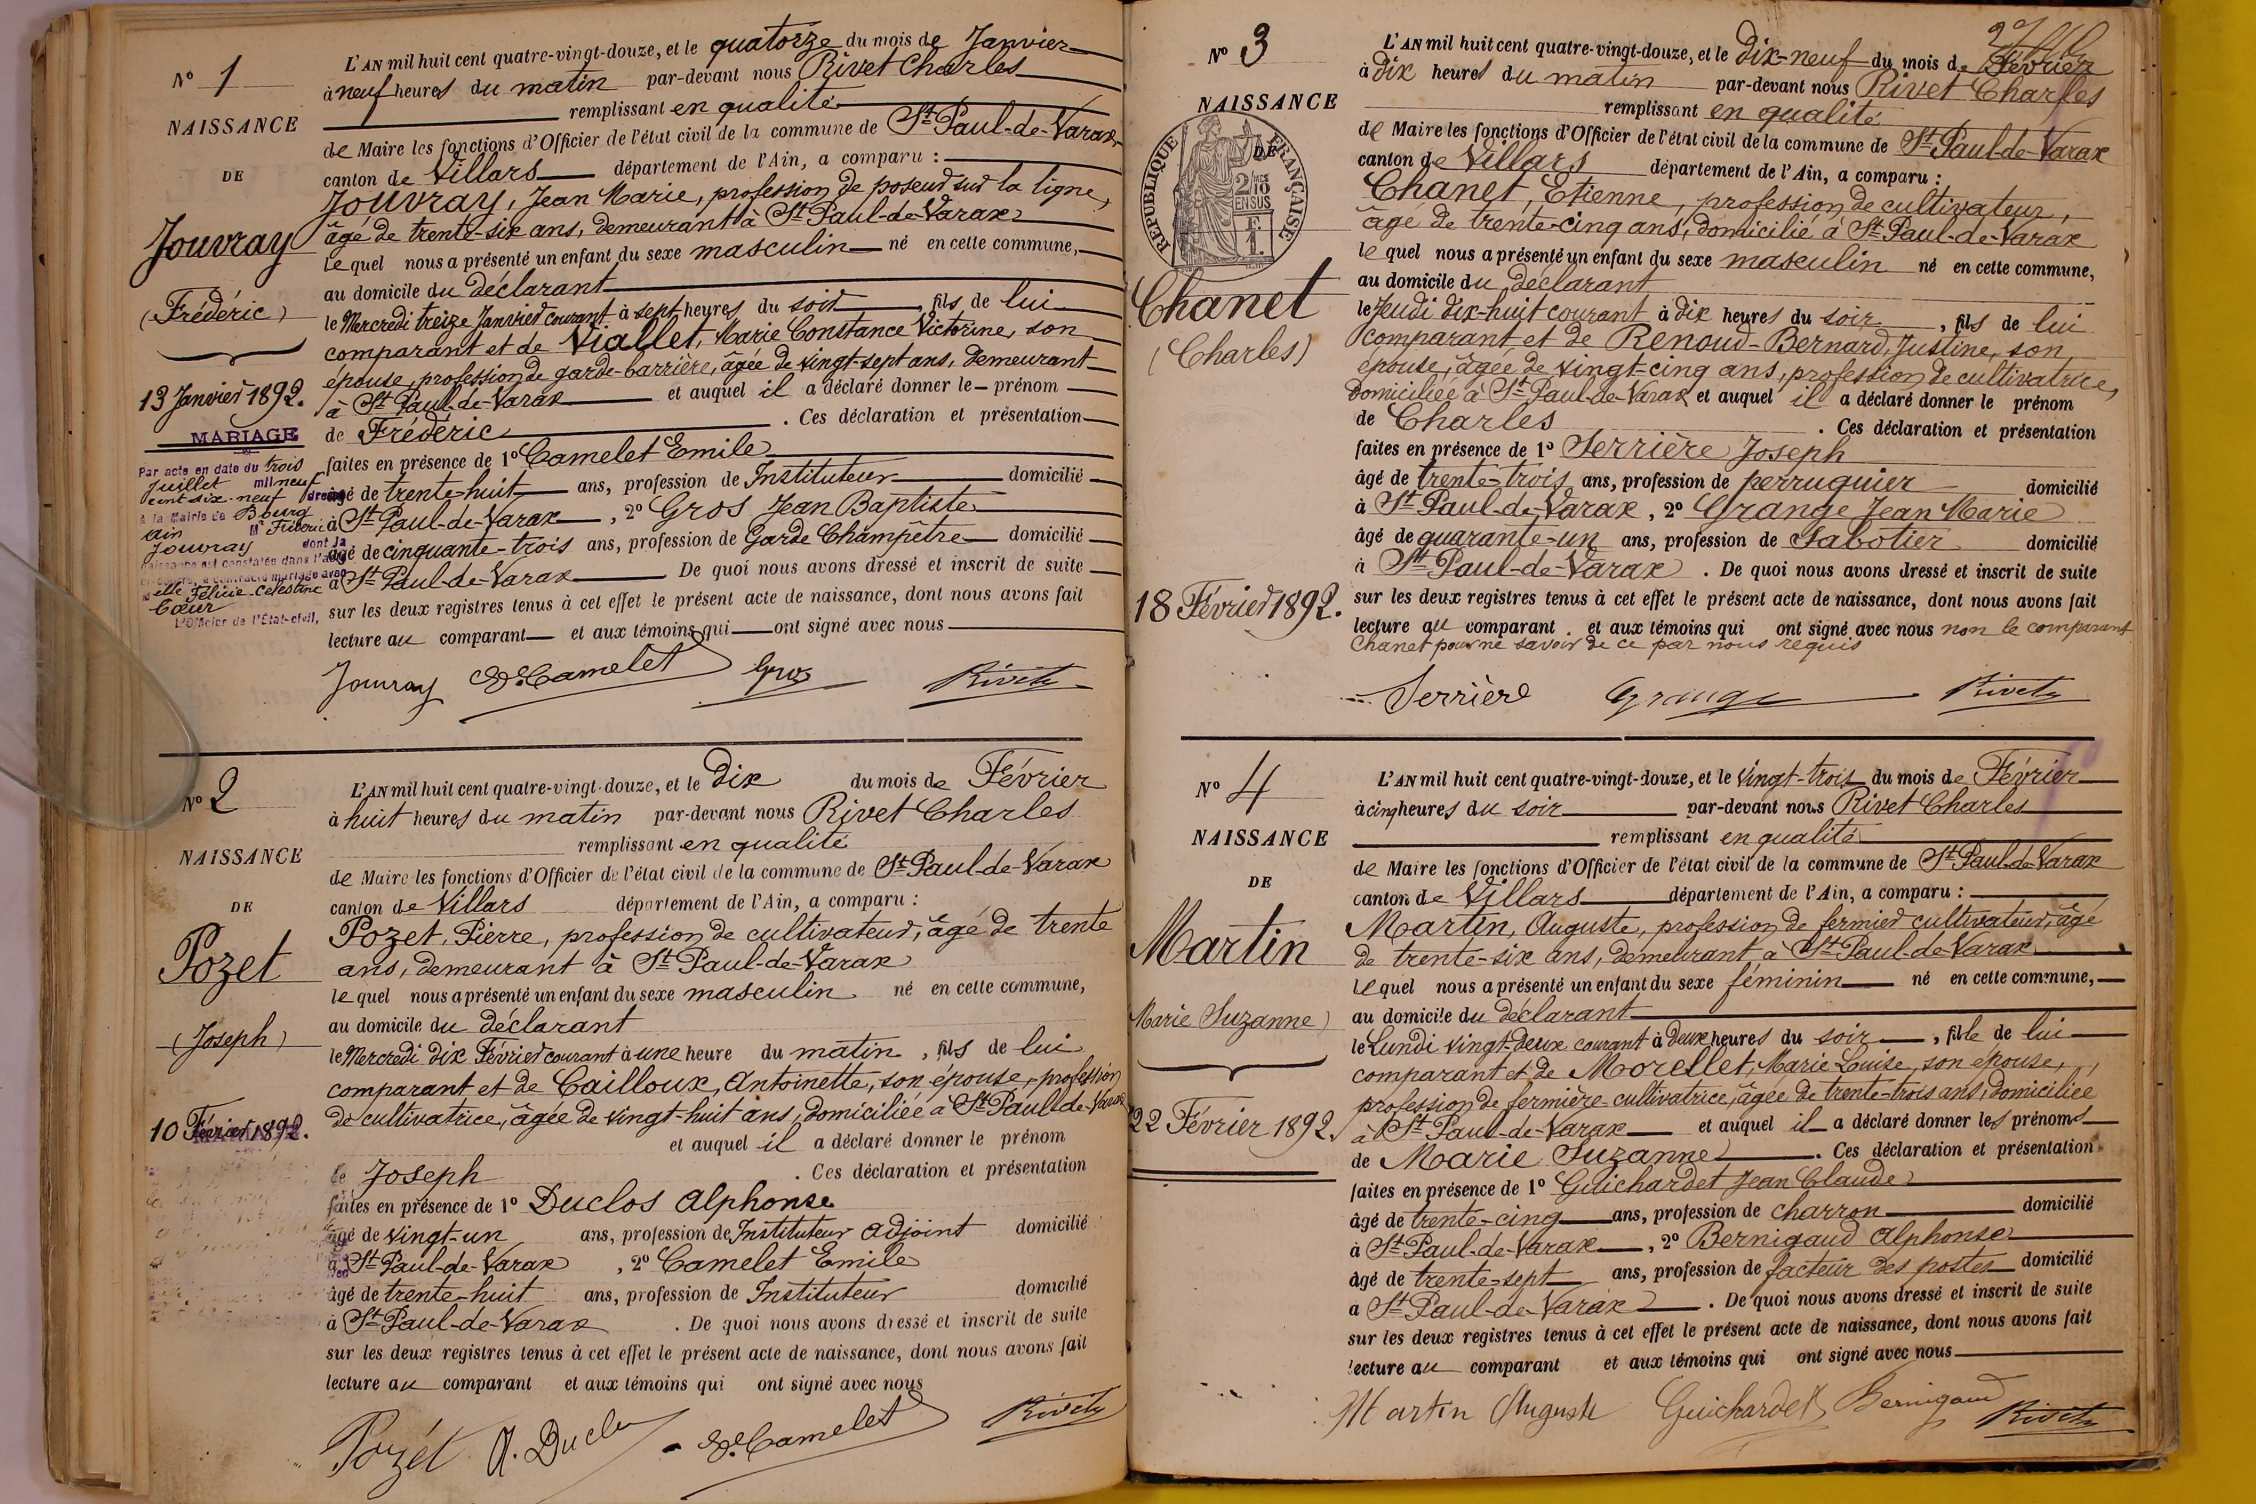 N° 1
NAISSANCE
DE
Jouvray
(Frédéric)
13 Janvier 1892.
MARIAGE
Par acte en date du trois
Juillet mil neuf
cent dix-neuf dressé
à la Mairie de Bourg
Ain Mr Frédéric
Jouvray dont la
naissance est constatée dans l'acte
ci-contre, a contracté mariage avec
elle Félicie Célestine
Cœur
L'Officier de l'État-civil,
L'AN mil huit cent quatre-vingt-douze, et le quatorze du mois de Janvier
à neuf heures du matin par-devant nous Rivet Charles
remplissant en qualité
de Maire les fonctions d'Officier de l'état civil de la commune de St-Paul-de-Varax
canton de Villars département de l'Ain, a comparu :
Jouvray, Jean Marie, profession de poseur sur la ligne,
âgé de trente-six ans, demeurant à St-Paul-de-Varax
lequel nous a présenté un enfant du sexe masculin né en cette commune,
au domicile du déclarant
le Mercredi treize Janvier courant à sept heures du soir, fils de lui
comparant et de Viallet, Marie Constance Victorine, son
épouse, profession de garde-barrière, âgée de vingt-sept ans, demeurant
à St-Paul-de-Varax et auquel il a déclaré donner le prénom
de Frédéric. Ces déclaration et présentation
faites en présence de 1° Camelet Emile
âgé de trente-huit ans, profession de Instituteur domicilié
à St-Paul-de-Varax, 2° Gros Jean Baptiste
âgé de cinquante-trois ans, profession de Garde Champêtre domicilié
à St-Paul-de-Varax De quoi nous avons dressé et inscrit de suite
sur les deux registres tenus à cet effet le présent acte de naissance, dont nous avons fait
lecture au comparant et aux témoins qui ont signé avec nous
Jouvray E. Camelet Gros Rivet
N° 2
NAISSANCE
DE
Pozet
(Joseph)
10 Février 1892.
L'AN mil huit cent quatre-vingt-douze, et le dix du mois de Février
à huit heures du matin par-devant nous Rivet Charles
remplissant en qualité
de Maire les fonctions d'Officier de l'état civil de la commune de St-Paul-de-Varax
canton de Villars département de l'Ain, a comparu :
Pozet, Pierre, profession de cultivateur, âgé de trente
ans, demeurant à St-Paul-de-Varax
lequel nous a présenté un enfant du sexe masculin né en cette commune,
au domicile du déclarant
le Mercredi dix Février courant à une heure du matin, fils de lui
comparant et de Cailloux, Antoinette, son épouse, profession
de cultivatrice, âgée de vingt-huit ans, domiciliée à St-Paul-de-Varax
et auquel il a déclaré donner le prénom
de Joseph. Ces déclaration et présentation
faites en présence de 1° Duclos Alphonse
âgé de vingt-un ans, profession de Instituteur adjoint domicilié
à St-Paul-de-Varax, 2° Camelet Emile
âgé de trente-huit ans, profession de Instituteur domicilié
à St-Paul-de-Varax. De quoi nous avons dressé et inscrit de suite
sur les deux registres tenus à cet effet le présent acte de naissance, dont nous avons fait
lecture au comparant et aux témoins qui ont signé avec nous
Pozét A. Duclos E. Camelet Rivet
N° 3
NAISSANCE
DE
RÉPUBLIQUE FRANÇAISE
2/10
EN SUS
Chanet
(Charles)
18 Février 1892.
L'AN mil huit cent quatre-vingt-douze, et le dix-neuf du mois de Février
à dix heures du matin par-devant nous Rivet Charles
remplissant en qualité
de Maire les fonctions d'Officier de l'état civil de la commune de St-Paul-de-Varax
canton de Villars département de l'Ain, a comparu :
Chanet, Etienne, profession de cultivateur,
âgé de trente-cinq ans, domicilié à St-Paul-de-Varax
lequel nous a présenté un enfant du sexe masculin né en cette commune,
au domicile du déclarant
le Jeudi dix-huit courant à dix heures du soir, fils de lui
comparant et de Renoud-Bernard, Justine, son
épouse, âgée de vingt-cinq ans, profession de cultivatrice,
domiciliée à St-Paul-de-Varax et auquel il a déclaré donner le prénom
de Charles. Ces déclaration et présentation
faites en présence de 1° Serrière Joseph
âgé de trente-trois ans, profession de perruquier domicilié
à St-Paul-de-Varax, 2° Grange Jean Marie
âgé de quarante-un ans, profession de Sabotier domicilié
à St-Paul-de-Varax. De quoi nous avons dressé et inscrit de suite
sur les deux registres tenus à cet effet le présent acte de naissance, dont nous avons fait
lecture au comparant et aux témoins qui ont signé avec nous non le comparant
Chanet pour ne savoir de ce par nous requis
Serrière Grange Rivet
N° 4
NAISSANCE
DE
Martin
Marie Suzanne)
22 Février 1892.
L'AN mil huit cent quatre-vingt-douze, et le vingt-trois du mois de Février
à cinq heures du soir par-devant nous Rivet Charles
remplissant en qualité
de Maire les fonctions d'Officier de l'état civil de la commune de St-Paul-de-Varax
canton de Villars département de l'Ain, a comparu :
Martin, Auguste, profession de fermier cultivateur, âgé
de trente-six ans, demeurant à St-Paul-de-Varax
lequel nous a présenté un enfant du sexe féminin né en cette commune,
au domicile du déclarant
le Lundi vingt-deux courant à deux heures du soir, fille de lui
comparant et de Morellet, Marie Louise, son épouse,
profession de fermière-cultivatrice, âgée de trente-trois ans, domiciliée
à St-Paul-de-Varax et auquel il a déclaré donner les prénoms
de Marie Suzanne. Ces déclaration et présentation
faites en présence de 1° Guichardet Jean Claude
âgé de trente-cinq ans, profession de charron domicilié
à St-Paul-de-Varax, 2° Bernigaud Alphonse
âgé de trente-sept ans, profession de facteur des postes domicilié
à St-Paul-de-Varax. De quoi nous avons dressé et inscrit de suite
sur les deux registres tenus à cet effet le présent acte de naissance, dont nous avons fait
lecture au comparant et aux témoins qui ont signé avec nous
Martin Auguste Guichardet Bernigaud Rivet